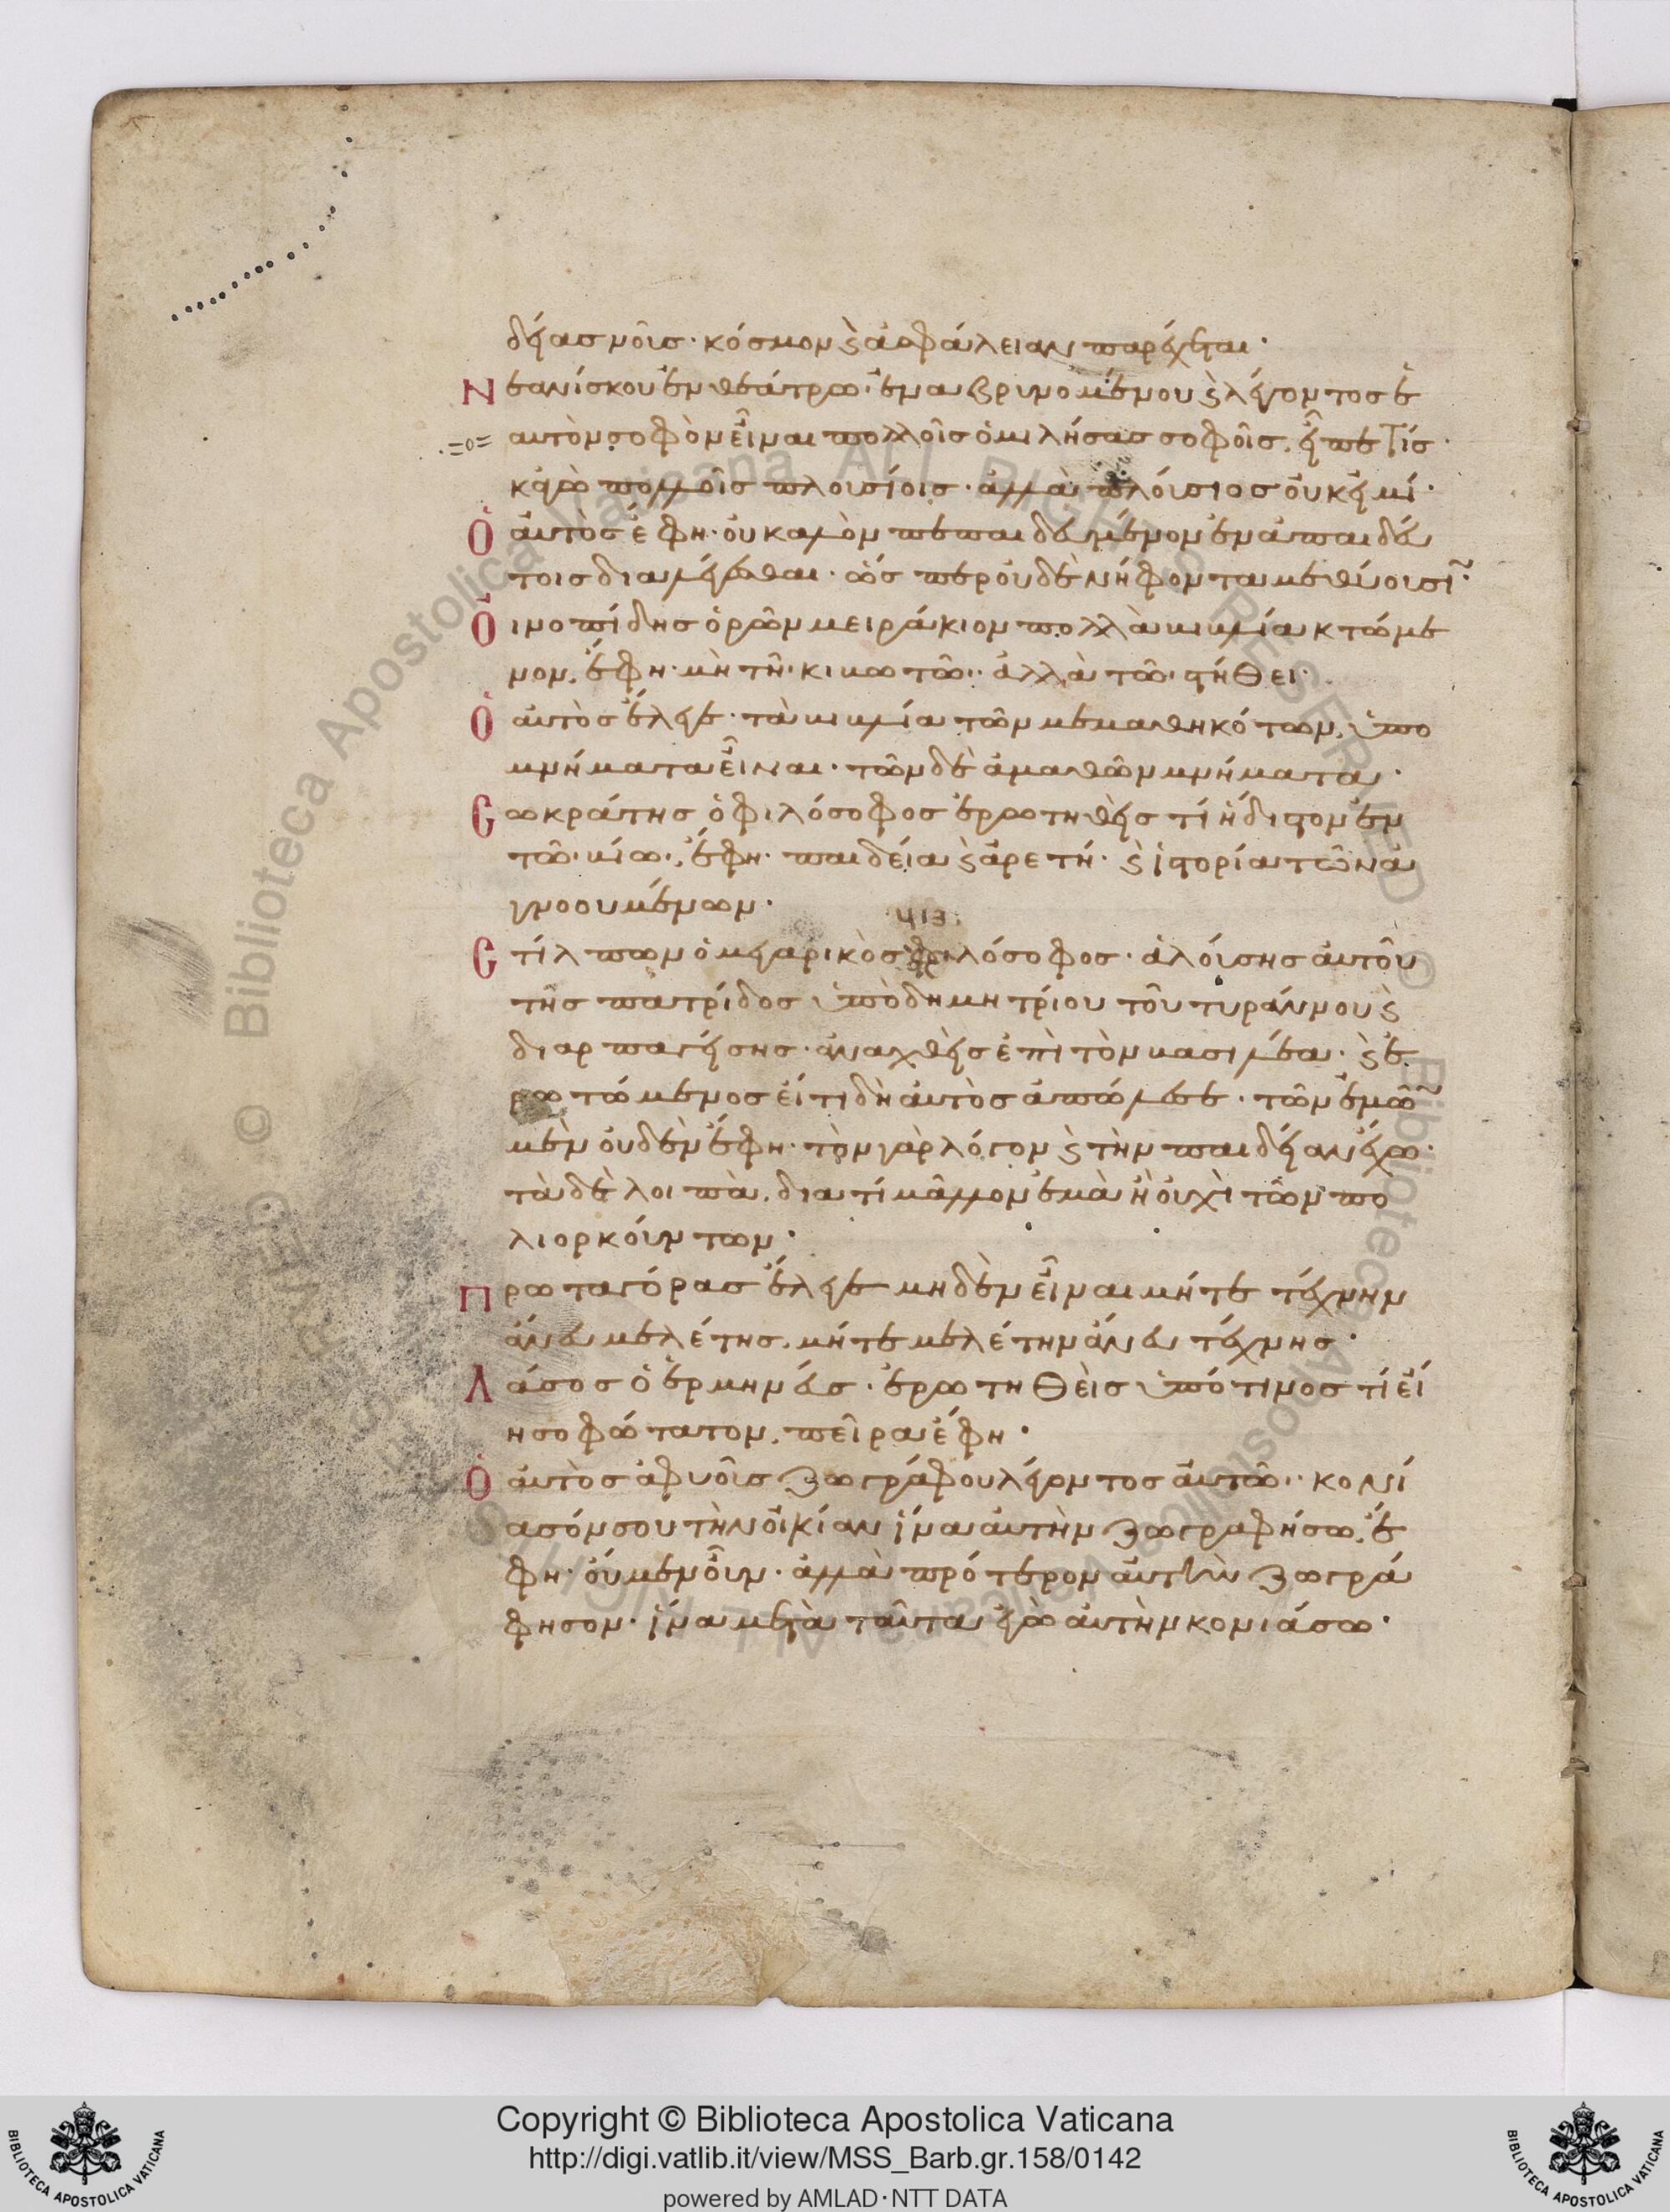 δείας νοῖς· κόσμον ϛ ἀσφάλειαν παρέχεται·
Νεανίσκου ἐν θεάτρω· ἐναυβρυνομένου ϛ λέγοντος ἑ
αυτὸν σοφὸν εἶναι πολλοῖς ὁμιλήσας σοφοῖς, εἶπέ τις·
κἀγὼ πολλοῖς πλουσίοις· ἀλλὰ πλούσιος οὔκ εἰμί·
Ὁ αὐτὸς ἔφη· οὐ καλὸν πεπαιδευμένον ἐν ἀπαιδεύ
τοις διαλέγεσθαι· ὥσπερ οὐδὲ νήφοντα μεθύουσι~·
Οἰνοπίδης ὁρῶν μειράκιον πολλὰ βιβλία κτώμε
νον, ἔφη· μὴ τῆ· κιβωτῶ·· ἀλλὰ τῶ· στήθει·
Ὁ αὐτὸς ἔλεγε· τὰ βιβλία τῶν μεμαθηκότων, ὑπο
μνήματα εἶναι· τῶν δὲ ἀμαθῶν μνήματα·
Σωκράτης ὁ φιλόσοφος ἐρωτηθεὶς τί ἥδιστον ἐν
τῶ· βίω·, ἔφη· παιδεία ϛ ἀρετή· ϛ ἱστορία τῶν ἀ
γνοουμένων·
413.
Στίλπων ὁ μεγαρικὸς φιλόσοφος· ἁλούσης αὐτοῦ
τῆς πατρίδος ὑπὸ δημητρίου τοῦ τυράννου ϛ
διαρπαγείσης· ἀναχθεὶς ἐπὶ τὸν βασιλέα· ϛ ἐ
ρωτώμενος εἴ τι δὴ αὐτὸς ἀπώλεσε· τῶν ἐμῶ~
μὲν οὐδὲν ἔφη· τὸν γὰρ λόγον ϛ τὴν παιδείαν ἔχω·
τὰ δὲ λοιπὰ, διατί μᾶλλον ἐμὰ ἢ οὐχὶ τῶν πο
λιορκούντων·
Πρωταγόρας ἔλεγε μηδὲν εἶναι μήτε τέχνην
ἄνευ μελέτης, μήτε μελέτην ἄνευ τέχνης·
Λάσος ὁ ἑρμηνεύς· ἐρωτηθεὶς ὑπό τινος τί εἴ
η σοφώτατον, πεῖρα ἔφη·
Ὁ αὐτὸς ἀφυοῖς ζωγράφου λέγοντος αὐτῶ·· κονί
ασόν σου τὴν οἰκίαν ἵνα αὐτὴν ζωγραφήσω, ἔ
φη· οὐμενοῦν· ἀλλὰ πρότερον αὐτὴν ζωγρά
φησον· ἵνα μετὰ ταῦτα ἐγὼ αὐτὴν κονιάσω·
Copyright © Biblioteca Apostolica Vaticana
http://digi.vatlib.it/view/MSS_Barb.gr.158/0142
powered by AMLAD·NTT DATA